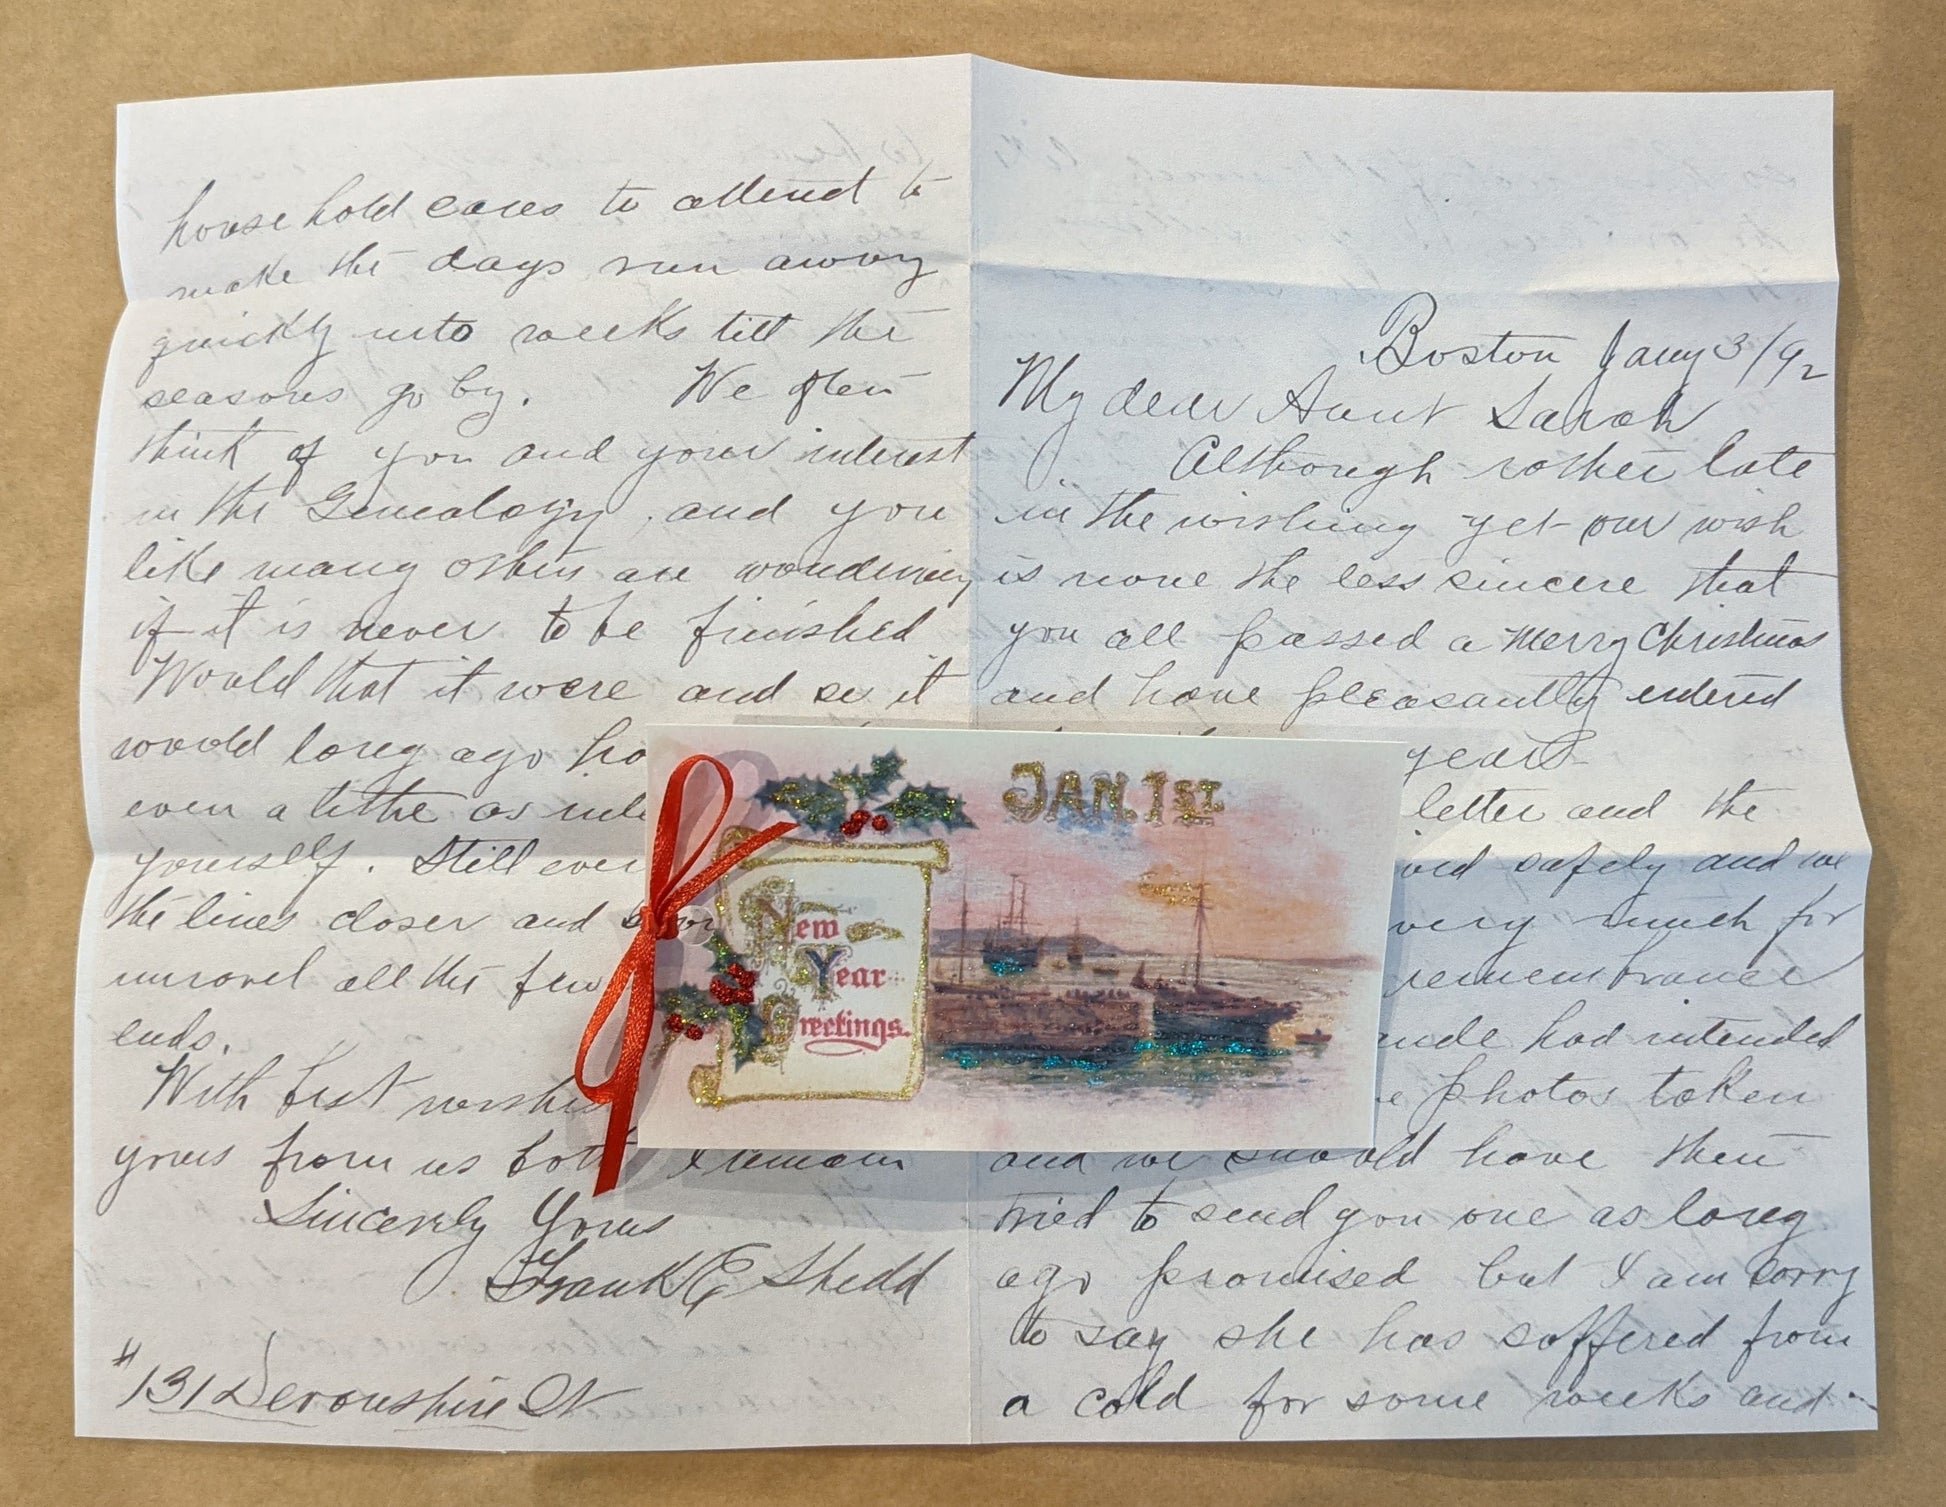 Boston Jany 3/92
My dear Aunt Sarah
Although rather late
in the wishing yet our wish
is none the less sincere that
you all passed a Merry Christmas
and have pleasantly entered
years
letter and the
safely and we
very much for
remembrance
had intended
photos taken
and we should have then
tried to send you one as long
ago promised but I am sorry
to say she has suffered from
a cold for some weeks and
household cares to attend to
make the days run away
quickly into weeks till the
seasons go by. We often
think of you and your interest
in the Genealogy, and you
like many others are wondering
if it is never to be finished
Would that it were and so it
would long ago
even a tithe as
yourself. Still
the lines closer and
unravel all the few
ends.
With best wishes
yours from us both I remain
Sincerely Yours
Frank E Shedd
#131 Devonshire St
JAN. 1ST
New
Year
Greetings.